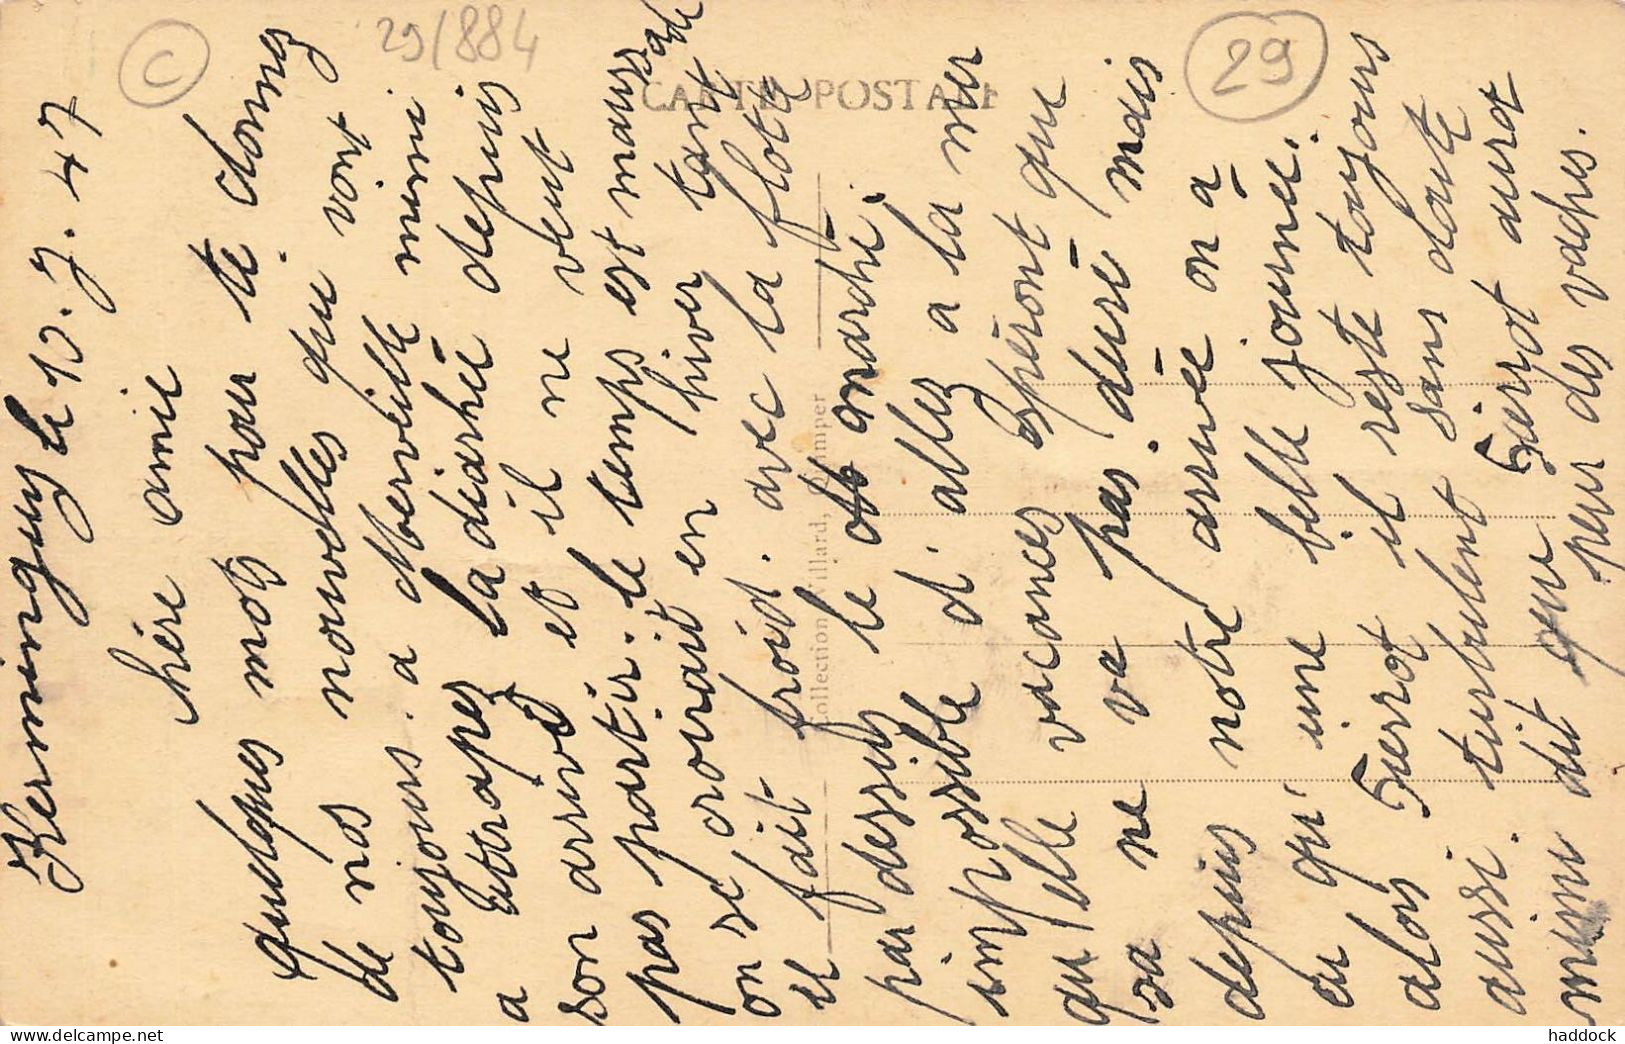 Kerminguy le 10.7.47
hère amie
quelques mots pour te donnez
de nos nouvelles qui vont
toujours. a Merveille mimi
a attrapez la diarhée depuis
son arrivé et il ne veut
pas partir. le temps est maussade
on se croirait en hiver tant
il fait froid. avec la flotte
par dessus le marché.
impossible d'allez a la mer
qu'elle vacances espèront que
sa ne va pas durée mais
depuis notre arrivée on a
eu qu'une belle journée.
alors Pierrot il reste toujours
aussi. turbulent sans doute
mimi dit que Pierrot aurot
peur des vaches.
CARTE POSTALE
Collection Villard, Quimper
C
29/884
29
haddock